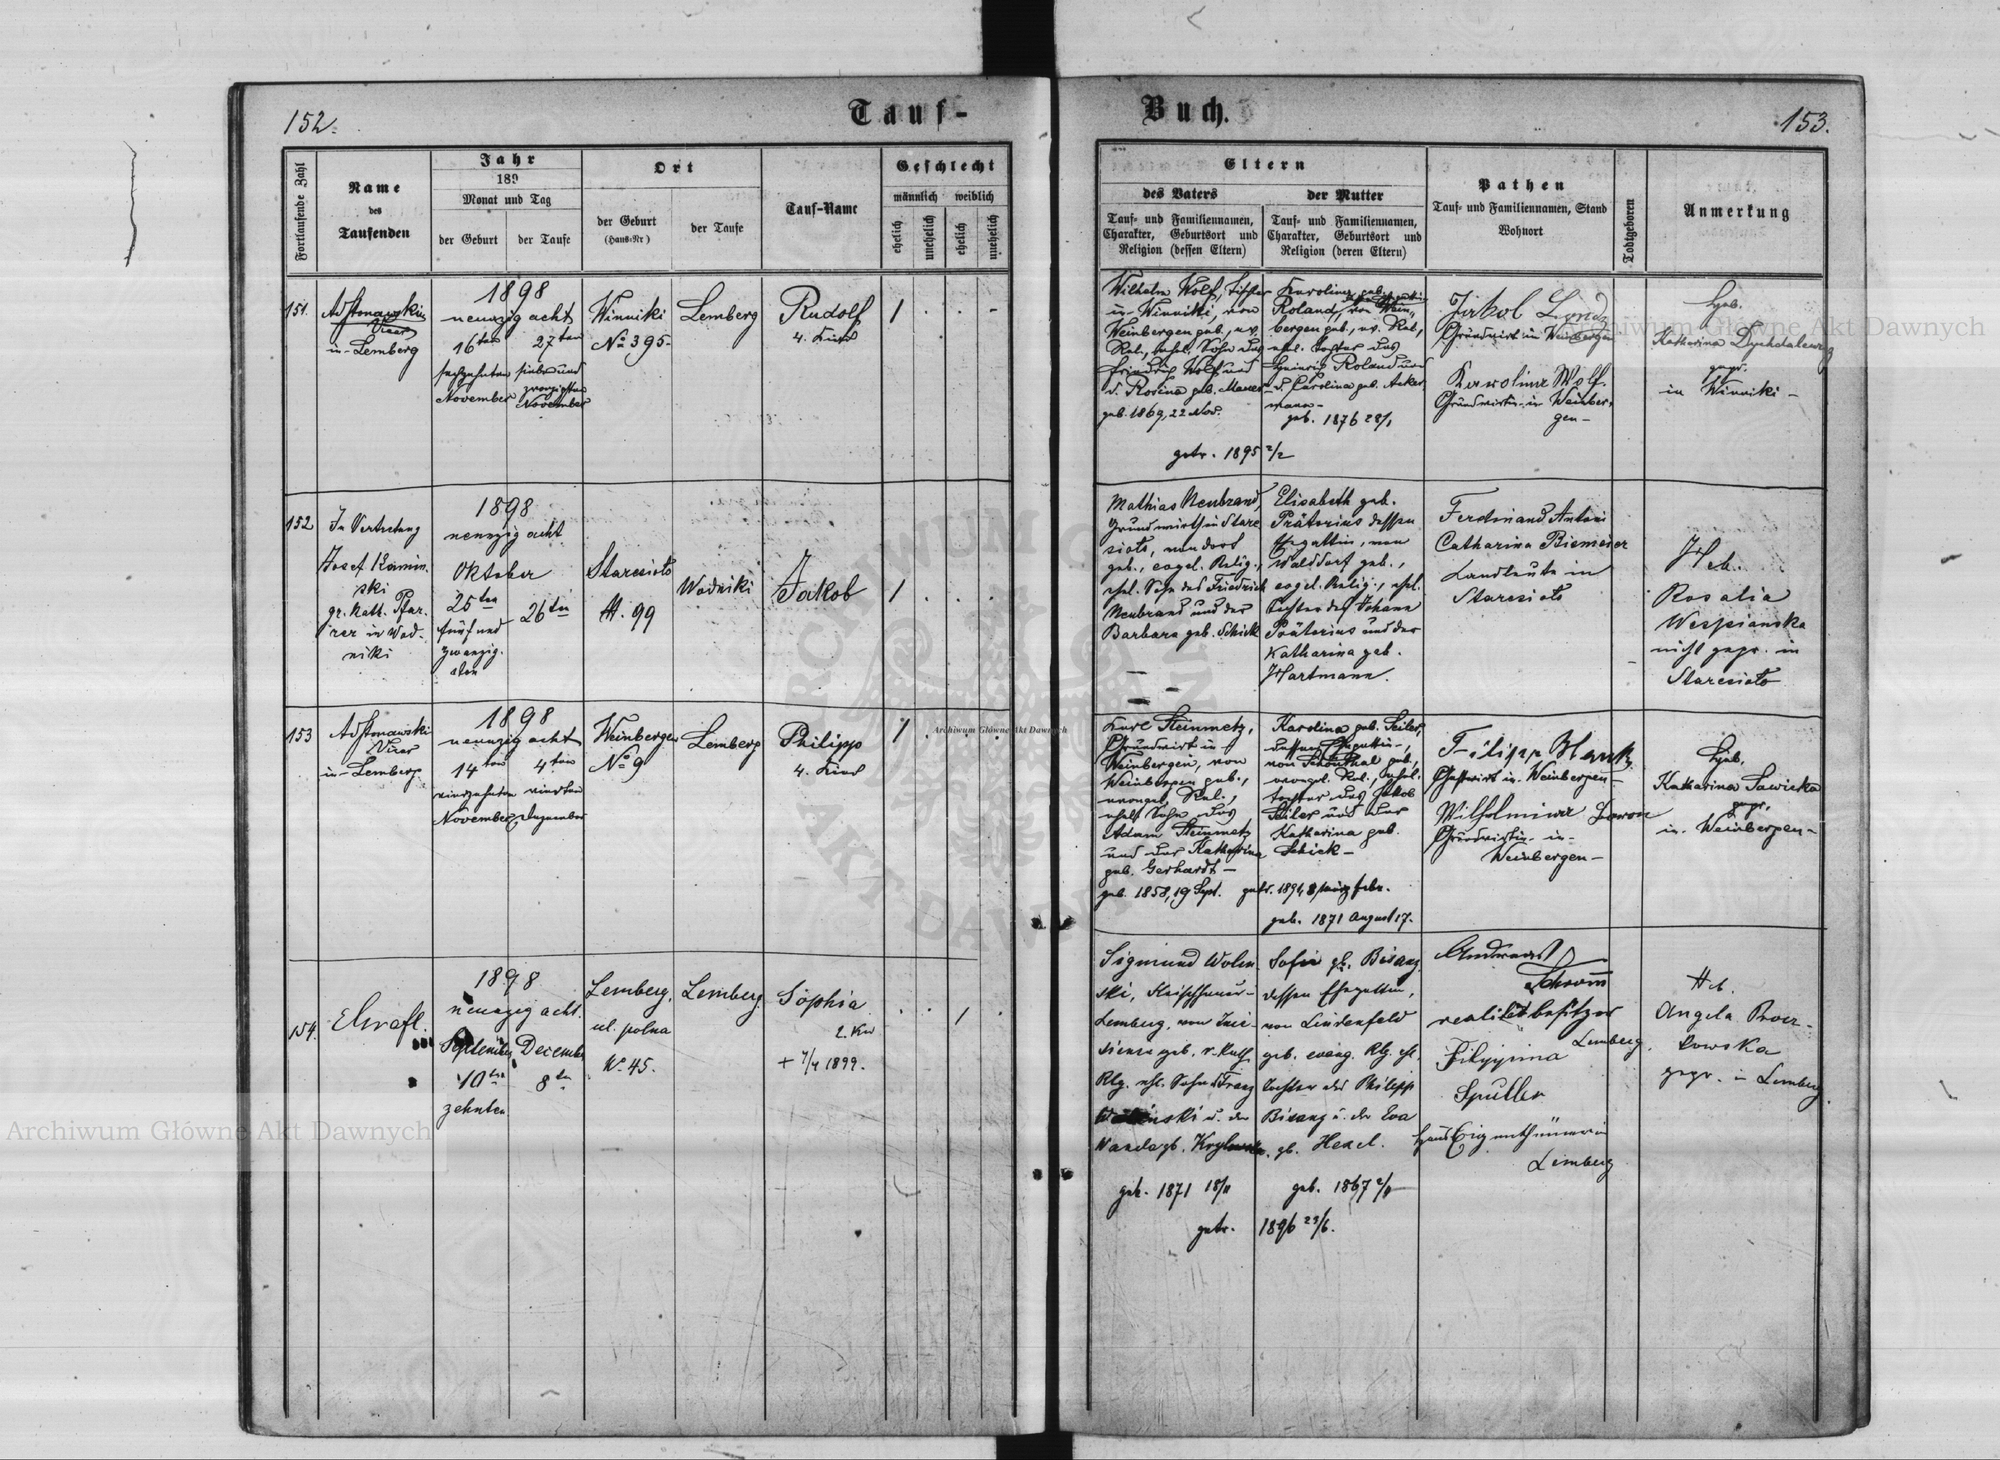 152.
Tauf-
Fortlaufende Zahl
Name
des
Taufenden
Jahr
189
Monat und Tag
der Geburt
der Taufe
Ort
der Geburt
(Haus-Nr)
der Taufe
Tauf-Name
Geschlecht
männlich weiblich
ehelich
unehelich
ehelich
unehelich
151.
Vicar
in Lemberg
1898
neunzig acht
16ten
27ten
sechzehnten
November
sieben und
zwanzigsten
November
Winniki
No 395
Lemberg
Rudolf
4. Kind
1
152
In Vertretung
Josef Kamin-
ski
gr. kath. Pfar-
rer in Wod-
niki
1898
neunzig acht
Oktober
25ten
26ten
fünf und
zwanzig-
sten
Staresioto
N. 99
Wodniki
Jakob
1
153
Vicar
in Lemberg
1898
neunzig acht
14ten
4ten
vierzehnten
November
vierten
Dezember
Weinbergen
No 9
Lemberg
Philipp
4. Kind
1
154.
1898
neunzig acht
September
December
10ten
8ten
zehnten
Lemberg,
ul. polna
No 45.
Lemberg
Sophia
2. Kind
+ 7/4 1899.
1
Buch.
153.
Eltern
des Vaters
Tauf- und Familiennamen,
Charakter, Geburtsort und
Religion (dessen Eltern)
der Mutter
Tauf- und Familiennamen,
Charakter, Geburtsort und
Religion (deren Eltern)
Pathen
Tauf- und Familiennamen, Stand
Wohnort
Todtgeboren
Anmerkung
Wilhelm Wolf, Tischler
in Winniki, von
Weinbergen geb., ev.
Rel., ehel. Sohn des
Friedrich Wolf und
d. Rosina geb. Mauer
geb. 1869, 22 Nov.
Karolina geb.
Roland, von Wein-
bergen geb., ev. Rel.,
ehel. Tochter des
Heinrich Roland und
d. Carolina geb. Acker-
mann
geb. 1876 28/1
getr. 1895 2/2
Jakob
Grundwirt in Weinbergen
Karolina Wolf
Grundwirtin in Weinber-
gen
Heb.
Katharina
gepr.
in Winniki
Mathias Neubrand,
Grundwirth in Stare
sioto, von dort
geb., evgl. Relig.,
ehel. Sohn des Friedrich
Neubrand und der
Barbara geb. Schick
Elisabeth geb.
Prätorius dessen
Ehegattin, von
Walddorf geb.,
evgl. Relig., ehel.
Tochter des Johann
Prätorius und der
Katharina geb.
Hartmann.
Ferdinand Antoni
Catharina Biemeier
Landleute in
Staresioto
Heb.
Rosalia
Wespianska
nicht gepr. in
Staresioto
Karl Steinmetz,
Grundwirt in
Weinbergen, von
Weinbergen geb.,
evangel. Rel.,
ehel. Sohn des
Adam Steinmetz
und der Katharina
geb. Gerhardt
geb. 1858, 19 Sept.
Karolina geb. Seiler,
dessen Ehegattin,
von Schönthal geb.,
evangel. Rel., ehel.
Tochter des Jakob
Seiler und der
Katharina geb.
Schick
geb. 1871 August 17.
Philipp Hauk
Gastwirt in Weinbergen
Wilhelmina
Grundwirtin in
Weinbergen
Heb.
Katharina Sawicka
gepr.
in Weinbergen
Sigmund Wolin-
ski,
Lemberg, von
geb. r. kath.
Rlg. ehl. Sohn d. Franz
Wolinski u. der
Wanda gb.
geb. 1871 18/11
Sofie gb. Bisanz
dessen Ehegattin,
von Lindenfeld
geb. evang. Rlg. ehl.
Tochter des Philipp
Bisanz u. der Eva
gb. Hexel.
geb. 1867 2/8
getr. 1896 29/6.
Andreas
Schramm
realitätbesitzer
Lemberg.
Filippina
Spuller
Haus Eigenthümerin
Lemberg
Heb.
Angela
gepr. in Lemberg
Archiwum Główne Akt Dawnych
Archiwum Główne Akt Dawnych
Archiwum Główne Akt Dawnych
ARCHIWUM GŁÓWNE AKT DAWNYCH